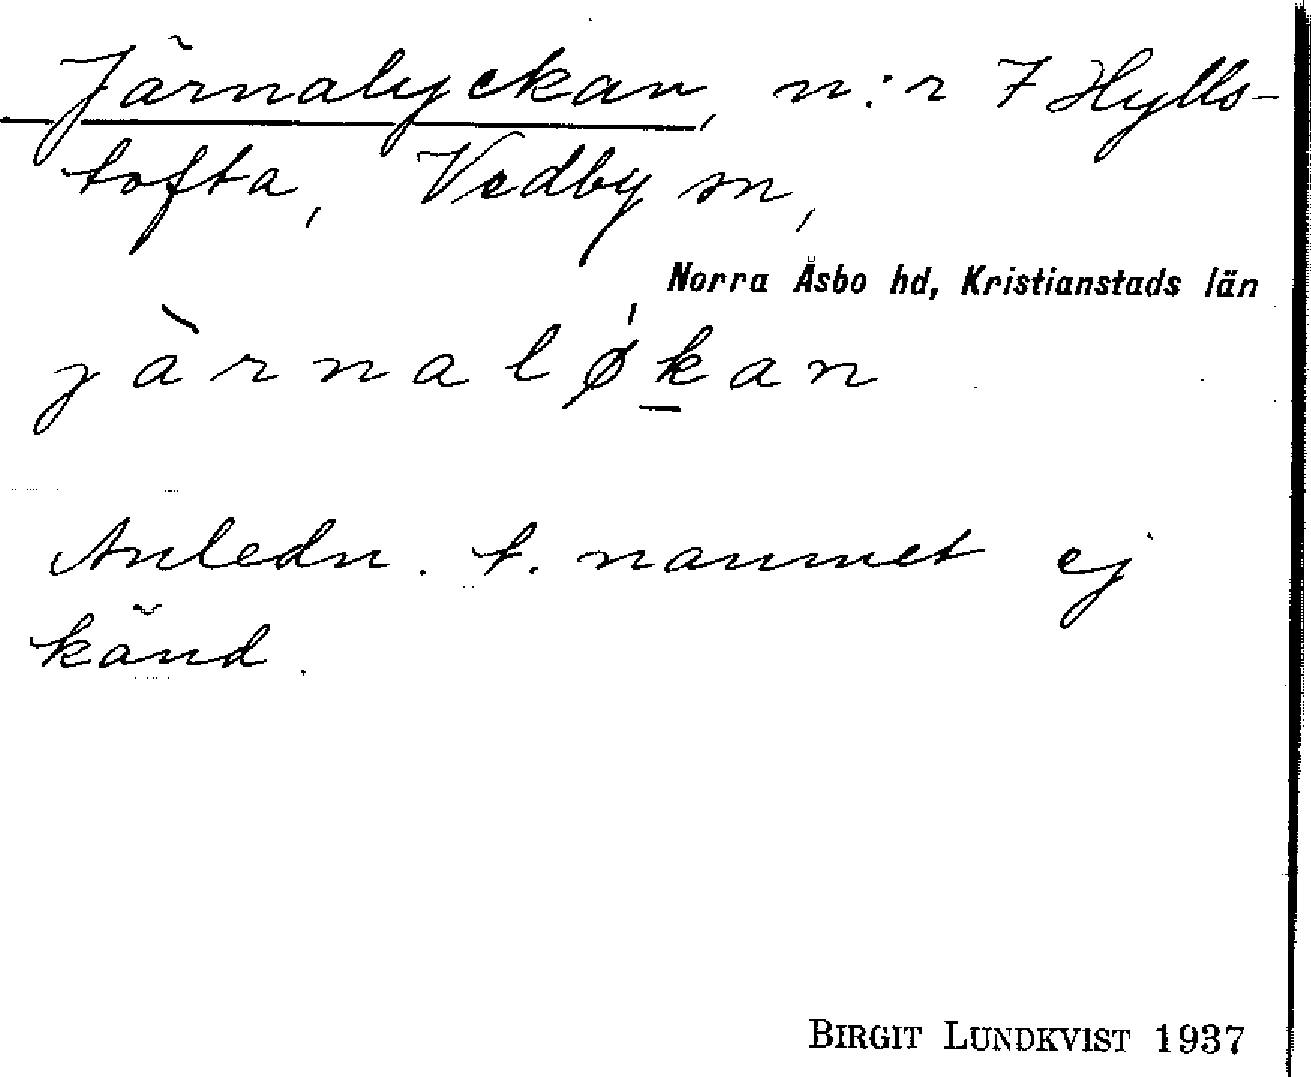 Järnalyckan, n:r 7 Hylls-
tofta, Vedby sn,
Norra Åsbo hd, Kristianstads län
jàrnaløkan
Anledn. t. namnet ej
känd.
BIRGIT LUNDKVIST 1937